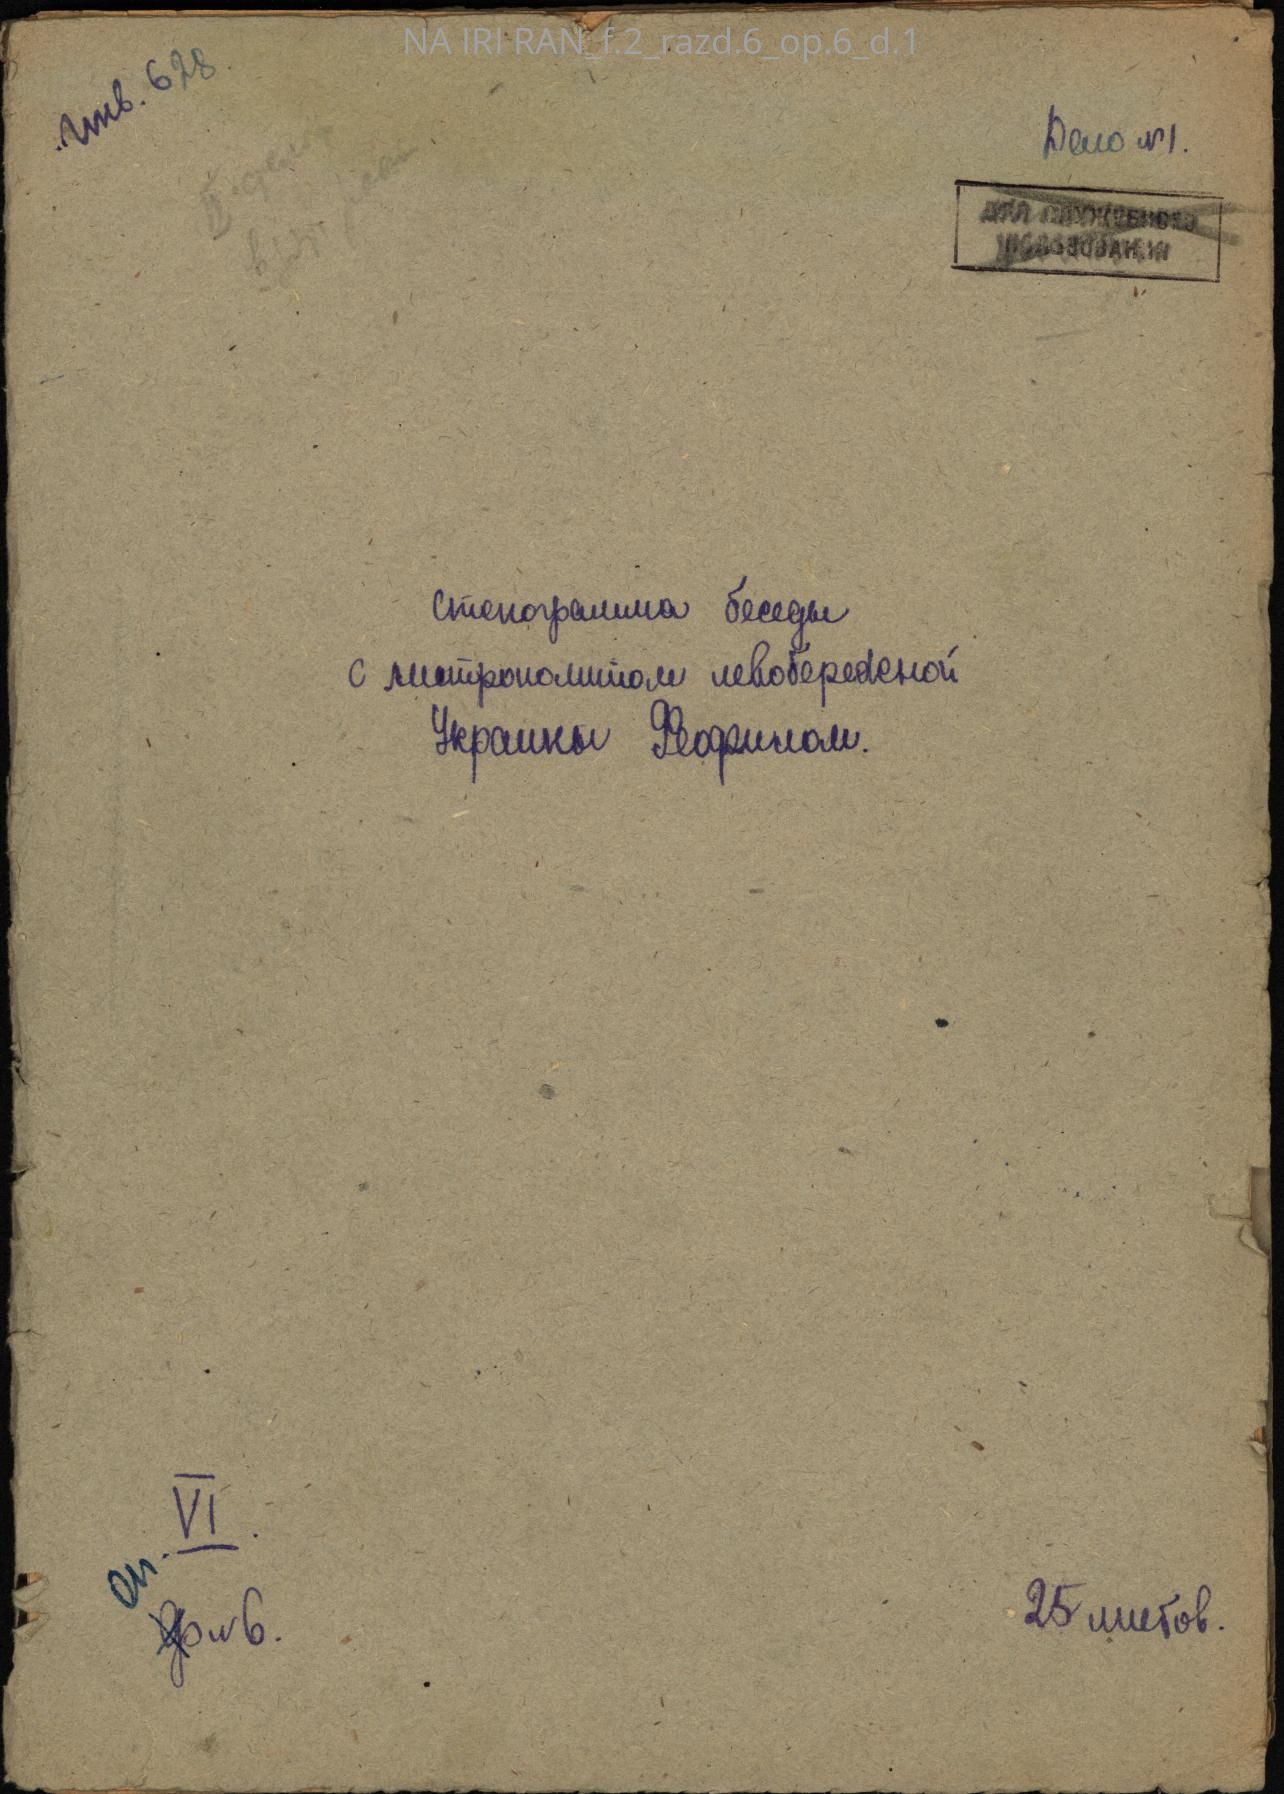 NA IRI RAN_f.2_razd.6_op.6_d.1
Инв. 628
Дело №1.
ДЛЯ СЛУЖЕБНОГО
ПОЛЬЗОВАНИЯ
Стенограмма беседы
с митрополитом левобережной
Украины Феофилом.
VI.
оп.
ф №6.
25 листов.